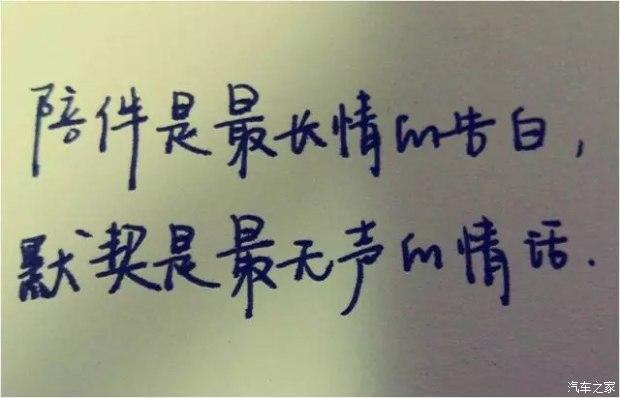 陪件是最长情的告白，
默契是最无声的情话.
汽车之家